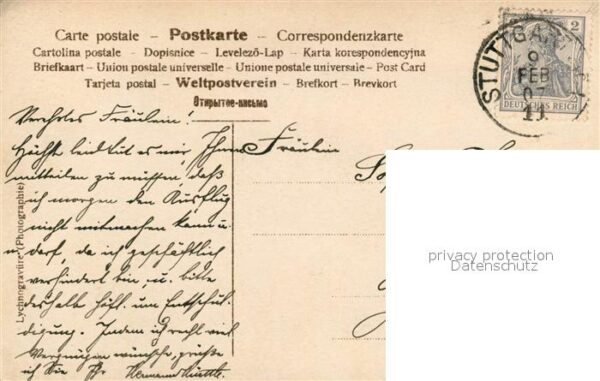 Carte postale – Postkarte – Correspondenzkarte
Cartolina postale – Dopisnice – Levelező-Lap – Karta korespondencyjna
Briefkaart – Union postale universelle – Unione postale universale – Post Card
Tarjeta postal – Weltpostverein – Brefkort – Brevkort
Открытое-письмо
STUTTGART
9
FEB
07
11
2
DEUTSCHES REICH
Verehrtes Fräulein!
Höchst leid tut es mir, Ihnen
mitteilen zu müssen, daß
ich morgen den Ausflug
nicht mitmachen kann u.
darf, da ich geschäftlich
verhindert bin, u. bitte
deshalb höfl. um Entschul-
digung. Indem ich recht viel
Vergnügen wünsche, grüße
ich Sie Ihr Hermann
Fräulein
Lychnogravüre (Photographie)
privacy protection
Datenschutz